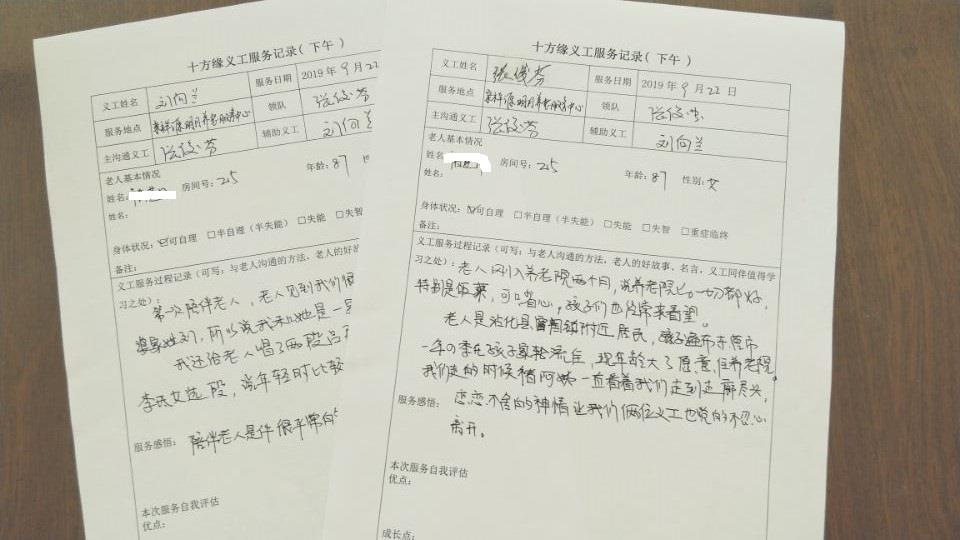 十方缘义工服务记录（下午）
义工姓名 刘向兰 服务日期 2019年9月22
服务地点 领队 张俊芬
主沟通义工 张俊芬 辅助义工 刘向兰
老人基本情况
姓名： 房间号：215 年龄：87
姓名：
身体状况：☑可自理 □半自理（半失能） □失能 □失智
备注：
义工服务过程记录（可写：与老人沟通的方法，老人的好故
习之处）：第一次陪伴老人，老人见到我们很
姓刘，所以说我和她是一
我还给老人唱了两段吕
李氏女选段，说年轻时比较
服务感悟：陪伴老人是件很平常的
本次服务自我评估
优点：
十方缘义工服务记录（下午）
义工姓名 张俊芬 服务日期 2019年9月22日
服务地点 领队 张俊芬
主沟通义工 张俊芬 辅助义工 刘向兰
老人基本情况
姓名： 房间号：215 年龄：87 性别：女
姓名：
身体状况：☑可自理 □半自理（半失能） □失能 □失智 □重症临终
备注：
义工服务过程记录（可写：与老人沟通的方法，老人的好故事，名言，义工同伴值得学
习之处）：老人刚入养老院两个月，说养老院一切都好，
特别是饭菜，可口省心，孩子们也经常来看望。
老人是沾化县富国镇附近居民，孩子
一年四季在孩子家轮流住，现年龄大了愿意住养老院。
我们走的时候 阿姨一直看着我们走到走廊尽头，
服务感悟：恋恋不舍的神情让我们俩位义工也觉的不忍心
离开。
本次服务自我评估
优点：
成长点：